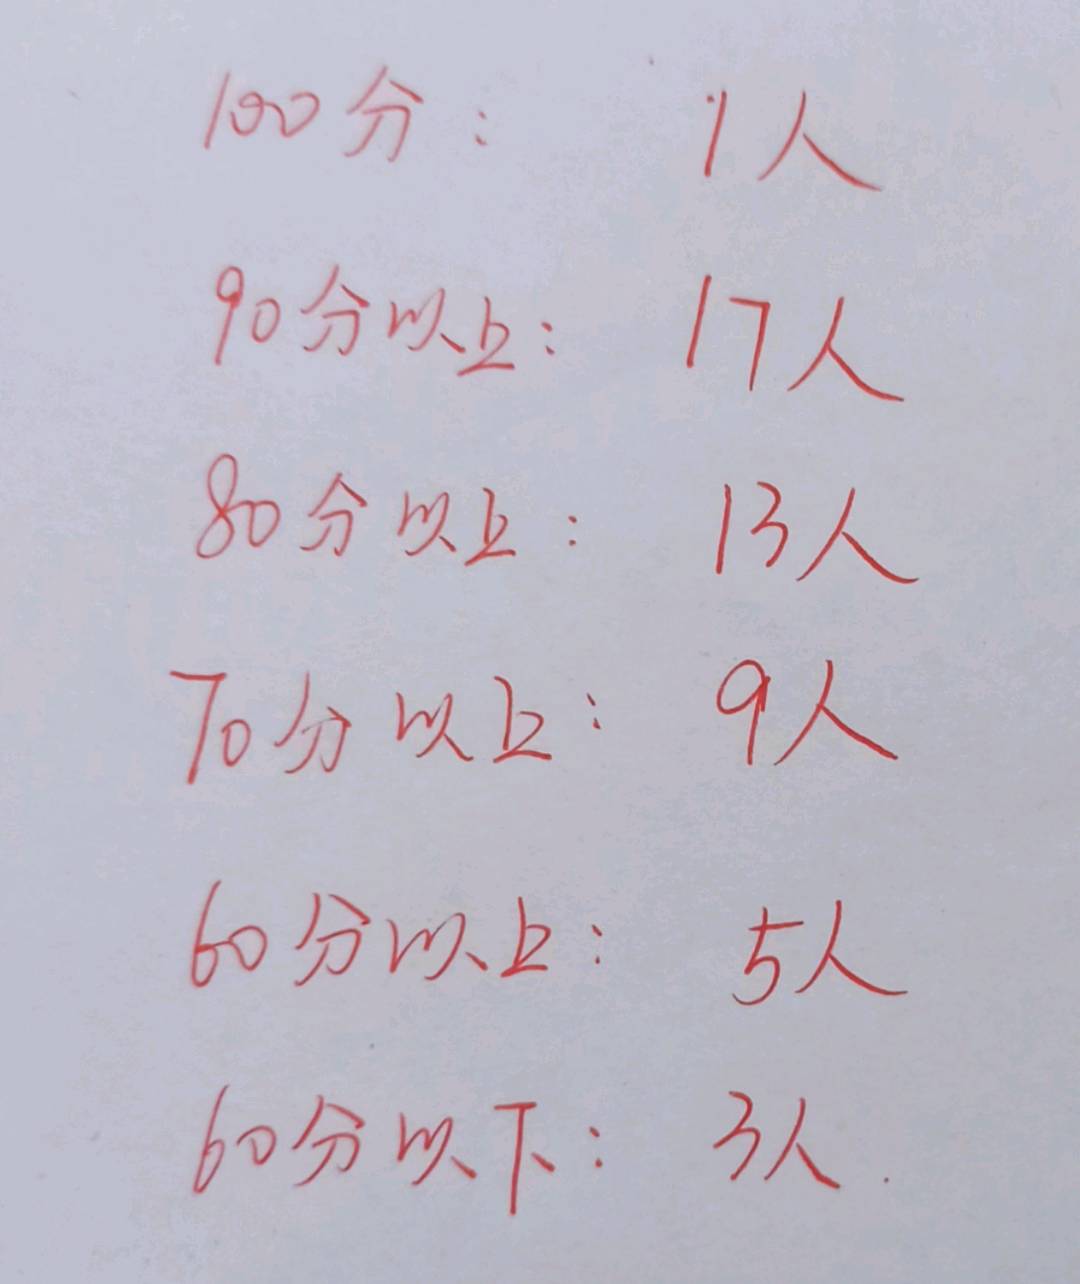 100分: 1人
90分以上: 17人
80分以上: 13人
70分以上: 9人
60分以上: 5人
60分以下: 3人.